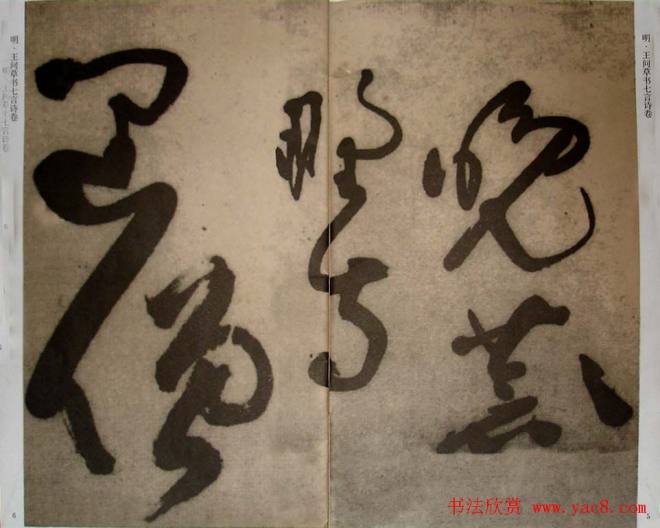 明·王问草书七言诗卷
晚
野寺
僧
明·王问草书七言诗卷
5
6
书法欣赏 www.yac8.com